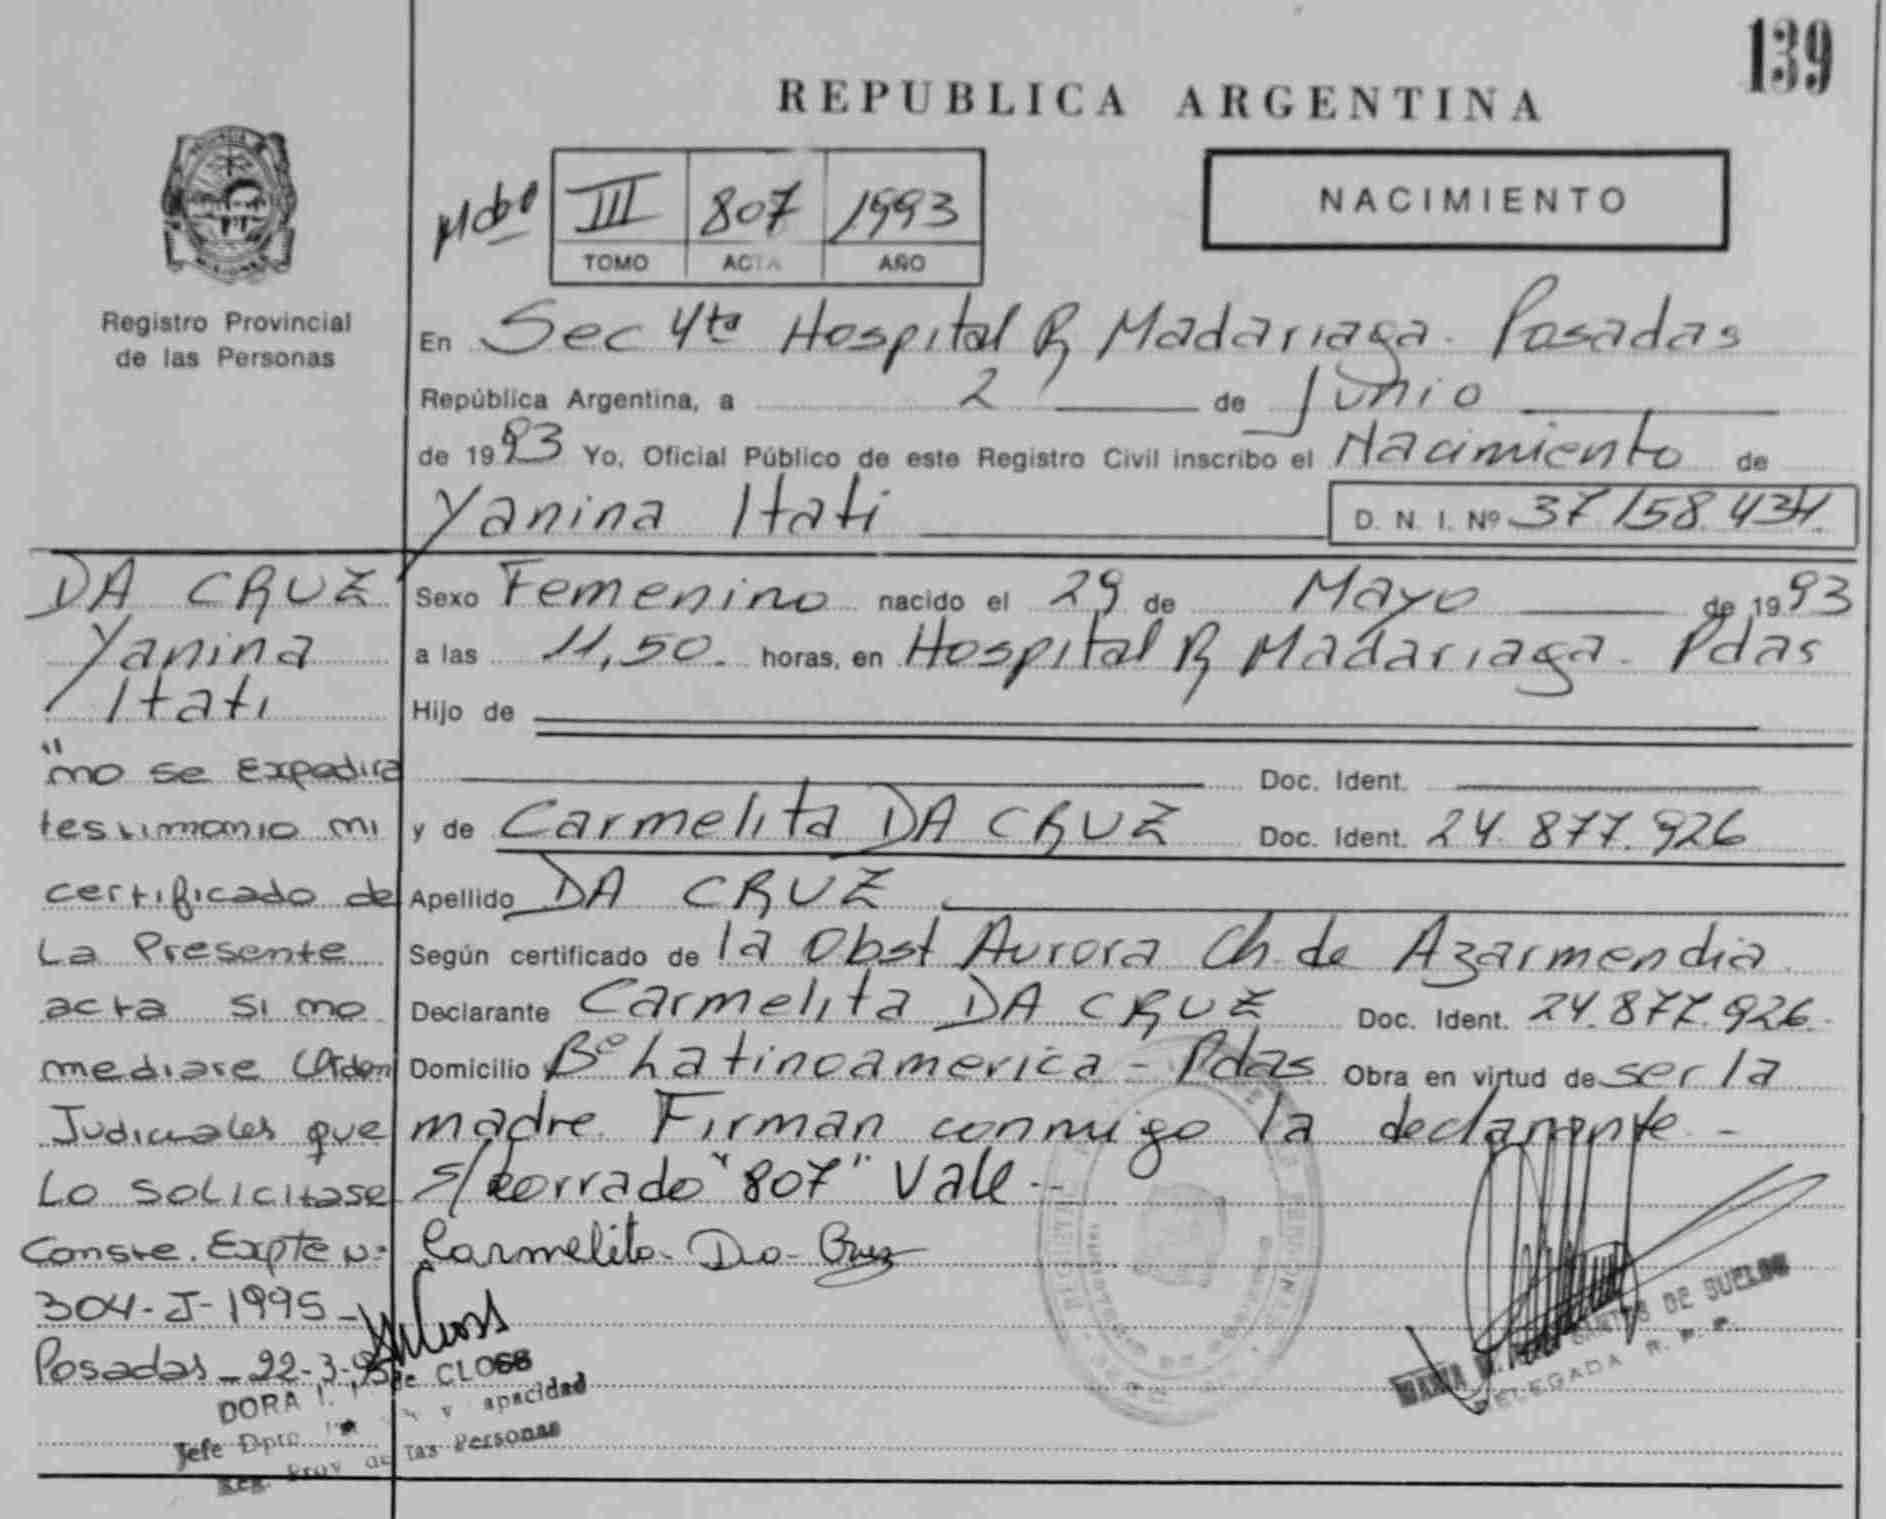 139
REPUBLICA ARGENTINA
III 807 1993
TOMO ACTA AÑO
NACIMIENTO
Registro Provincial
de las Personas
En Sec 4ta Hospital R Madariaga. Posadas
República Argentina, a 2 de Junio
de 1993 Yo, Oficial Público de este Registro Civil inscribo el Nacimiento de
Yanina Itati D. N. I. Nº 37158.434.
DA CRUZ
Yanina
Itati
Sexo Femenino nacido el 29 de Mayo de 1993
a las 11,50. horas, en Hospital R Madariaga. Pdas
Hijo de
Doc. Ident.
y de Carmelita DA CRUZ Doc. Ident. 24.877.926
Apellido DA CRUZ
Según certificado de la Obst Aurora Ch. de Azarmendia
Declarante Carmelita DA CRUZ Doc. Ident. 24.877.926.
Domicilio Bº Latinoamerica - Pdas Obra en virtud de ser la
madre. Firman conmigo la declarante. -
s/borrado "807" Vale -
Carmelita Da Cruz
"no se expedira
testimonio ni
certificado de
La Presente
acta si no
mediare Orden
Judiciales que
Lo solicitase
Conste. Expte Nº
304-J-1995-
Posadas - 22-3-95
DORA I. de CLOSS
Jefe Dpto y apacidad
Reg. Prov de las Personas
MARIA SANTOS DE SUELDO
DELEGADA R. P. P.